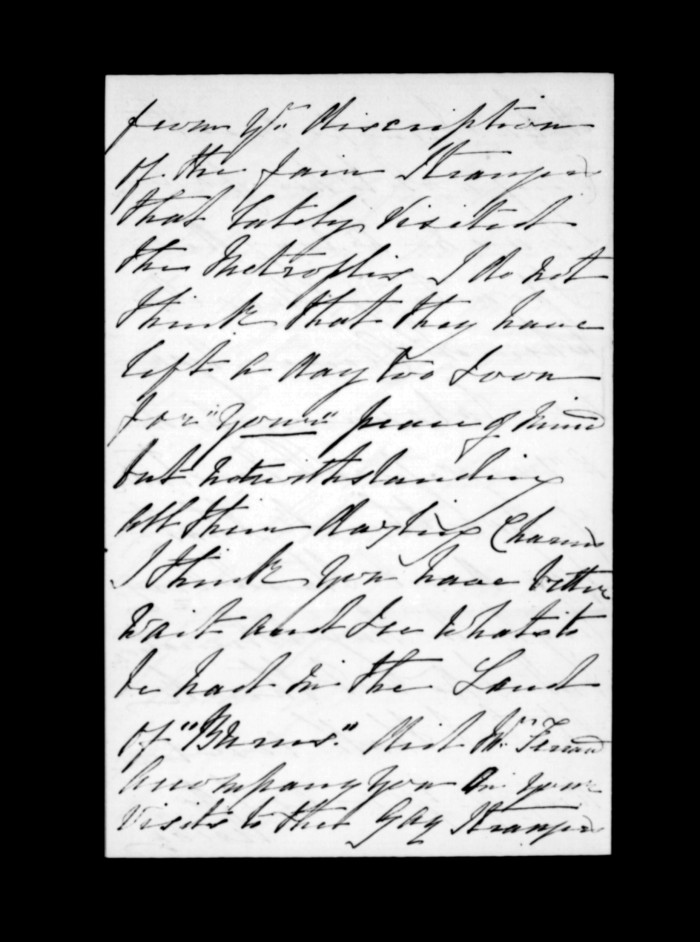 from yr. discription
of the fair Strangers
that lately visited
the Metroplis I do not
think that they have
left a day too soon
for "your" peace of mind
but notwithstanding
all their dazling Charms
I think you have better
wait and see whats to
be had in the Land
of "Burns." did Mr.
accompany you in your
visits to the Gay Strangers